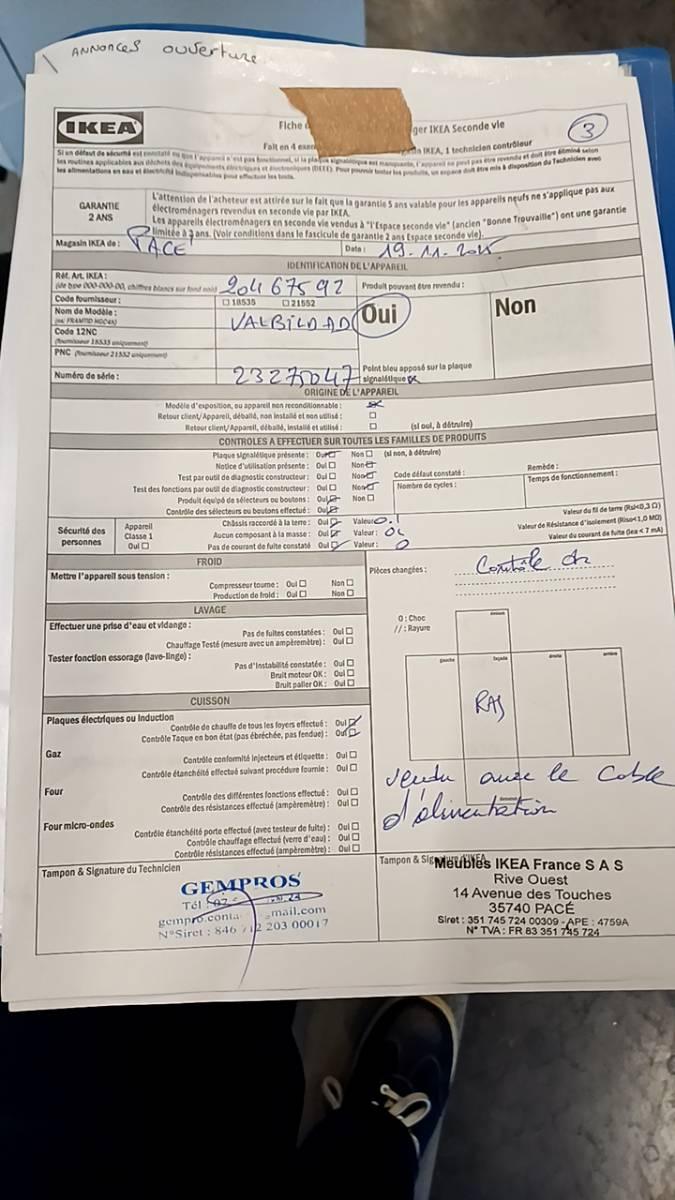 ANNONCES ouverture
IKEA
Fiche
ger IKEA Seconde vie
3
Fait en 4 exem
IKEA, 1 technicien contrôleur
Si un défaut de sécurité est constaté ou que l'appareil n'est pas fonctionnel, si la plaque signalétique est manquante, l'appareil ne peut pas être revendu et doit être éliminé selon
les routines applicables aux déchets des équipements électriques et électroniques (DEEE). Pour pouvoir tester les produits, un espace doit être mis à disposition du Technicien avec
les alimentations en eau et électricité indispensables pour effectuer les tests.
GARANTIE
2 ANS
L'attention de l'acheteur est attirée sur le fait que la garantie 5 ans valable pour les appareils neufs ne s'applique pas aux
électroménagers revendus en seconde vie par IKEA.
Les appareils électroménagers en seconde vie vendus à "l'Espace seconde vie" (ancien "Bonne Trouvaille") ont une garantie
limitée à 2 ans. (Voir conditions dans le fascicule de garantie 2 ans Espace seconde vie).
Magasin IKEA de : PACE
Date : 19.11.2025
IDENTIFICATION DE L'APPAREIL
Réf. Art. IKEA : 20467592
(de type 000-000-00, chiffres blancs sur fond noir)
Produit pouvant être revendu :
Code fournisseur : □ 18535 □ 21552
Oui
Non
Nom de Modèle : VALBILDAD
Code 12NC
(fournisseur 18535 uniquement)
PNC (fournisseur 21552 uniquement)
Point bleu apposé sur la plaque
signalétique
Numéro de série : 23275047
ORIGINE DE L'APPAREIL
Modèle d'exposition, ou appareil non reconditionnable :
Retour client/Appareil, déballé, non installé et non utilisé : □
Retour client/Appareil, déballé, installé et utilisé : □ (si oui, à détruire)
CONTROLES A EFFECTUER SUR TOUTES LES FAMILLES DE PRODUITS
Plaque signalétique présente : Oui Non □ (si non, à détruire)
Notice d'utilisation présente : Oui □ Non
Test par outil de diagnostic constructeur : Oui □ Non
Code défaut constaté :
Remède :
Test des fonctions par outil de diagnostic constructeur : Oui □ Non
Nombre de cycles :
Temps de fonctionnement :
Produit équipé de sélecteurs ou boutons : Oui Non □
Contrôle des sélecteurs ou boutons effectué : Oui
Sécurité des
personnes
Appareil
Classe 1
Oui □
Châssis raccordé à la terre : Oui Valeur: 0.1
Valeur du fil de terre (Rsl<0,3 Ω)
Aucun composant à la masse : Oui Valeur :
Valeur de Résistance d'isolement (Riso<1,0 MΩ)
Pas de courant de fuite constaté Oui Valeur : 0
Valeur du courant de fuite (Iea < 7 mA)
FROID
Mettre l'appareil sous tension :
Compresseur tourne : Oui □ Non □
Production de froid : Oui □ Non □
Pièces changées :
Contrôle
LAVAGE
Effectuer une prise d'eau et vidange :
Pas de fuites constatées : Oui □
Chauffage Testé (mesure avec un ampèremètre) : Oui □
Tester fonction essorage (lave-linge) :
Pas d'instabilité constatée : Oui □
Bruit moteur OK : Oui □
Bruit palier OK : Oui □
O : Choc
// : Rayure
dessus
gauche
façade
droite
arrière
RAS
CUISSON
Plaques électriques ou Induction
Contrôle de chauffe de tous les foyers effectué : Oui
Contrôle Taque en bon état (pas ébréchée, pas fendue) : Oui
Gaz
Contrôle conformité injecteurs et étiquette : Oui □
Contrôle étanchéité effectué suivant procédure fournie : Oui □
Four
Contrôle des différentes fonctions effectué : Oui □
Contrôle des résistances effectué (ampèremètre) : Oui □
Four micro-ondes
Contrôle étanchéité porte effectué (avec testeur de fuite) : Oui □
Contrôle chauffage effectué (verre d'eau) : Oui □
Contrôle résistances effectué (ampèremètre) : Oui □
vendu avec le cable
d'alimentation
Tampon & Signature du Technicien
GEMPROS
Tél :
gempro.conta mail.com
N°Siret : 846 712 203 00017
Tampon & Signature IKEA
Meubles IKEA France S A S
Rive Ouest
14 Avenue des Touches
35740 PACÉ
Siret : 351 745 724 00309 - APE : 4759A
N° TVA : FR 83 351 745 724